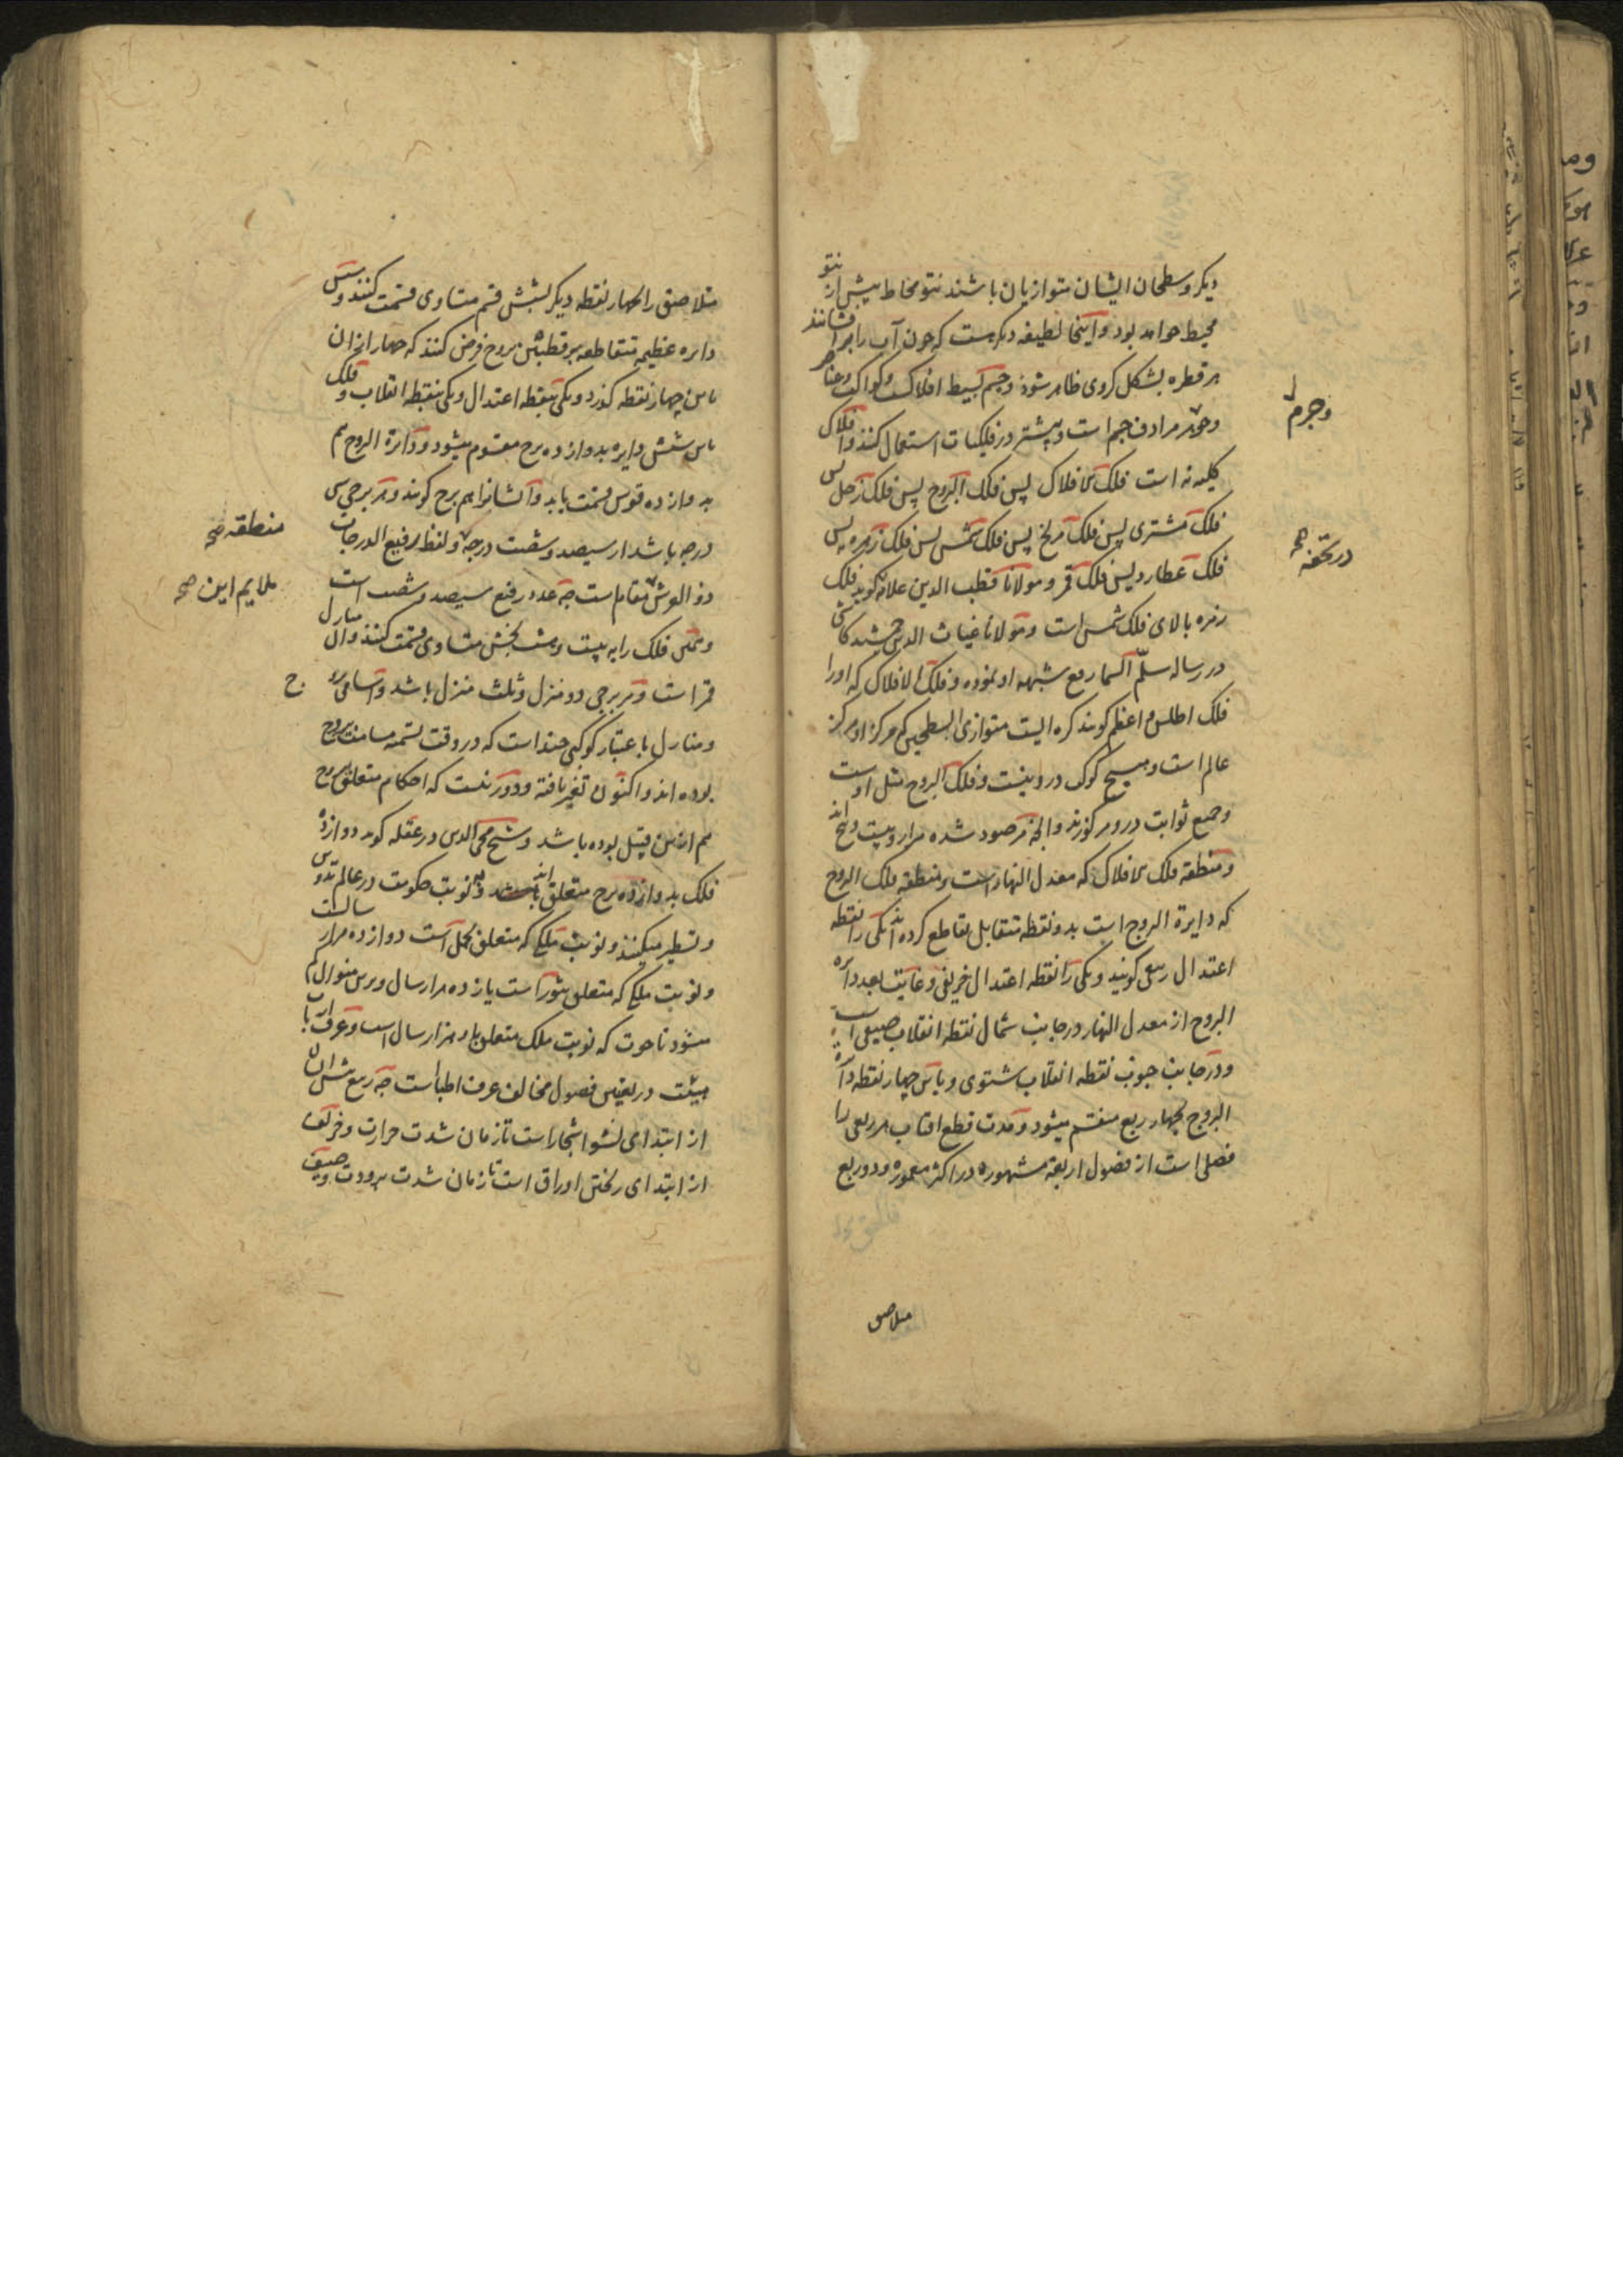 دیکر و سطحان ایشان متوازیان باشند نتو محاط بیش از نتو
محیط خواهد بود و اینجا لطیفه دیکرست که چون آب را برافشانند
هر قطره بشکل کروی ظاهر شود و جسم بسیط افلاک و کواکب و عناصر
و جرم مرادف جسم است و بیشتر در فلکیات استعمال کنند و افلاک
وجرم
کلیه نه است فلک الافلاک پس فلک البروج پس فلک زحل پس
فلک مشتری پس فلک مریخ پس فلک شمس پس فلک زهره پس
در تحفه صح
فلک عطارد پس فلک قمر و مولانا قطب الدین علامه کوید فلک
زهره بالای فلک شمس است و مولانا غیاث الدین جمشید کاشی
در رساله سلّم السما رفع شبهه او نموده و فلک الافلاک که اورا
فلک اطلس و اعظم کویند کره ایست متوازی السطحین که مرکز او مرکز
عالم است و هیچ کوکب درو نیست و فلک البروج مثل اوست
و جمیع ثوابت درو مرکوزند و آنچه مرصود شده هزار و بیست و پنج اند
و منطقه فلک الافلاک که معدل النهار است و منطقه فلک البروج
که دایرة البروج است بدو نقطه متقابل تقاطع کرده اند یکی را نقطه
اعتدال ربیعی کویند و یکی را نقطه اعتدال خریفی و غایت بعد دایره
البروج از معدل النهار در جانب شمال نقطه انقلاب صیفی است
و در جانب جنوب نقطه انقلاب شتوی و باین چهار نقطه دایره
البروج بچهار ربع منقسم میشود و مدت قطع افتاب هر ربعی را
فصلی است از فصول اربعه مشهوره در اکثر معموره و دو ربع
متلاصق
متلاصق را بچهار نقطه دیکر بشش قسم متساوی قسمت کنند و شش
دایره عظیمه متقاطعه بر قطبین بروج فرض کنند که چهار از ان
باین چهار نقطه کذرد و یکی بنقطه اعتدال و یکی بنقطه انقلاب و فلک
باین شش دایره بدوازده برج مقسوم میشود و دایرة البروج هم
بدوازده قوس قسمت یابد و آنها را هم برج کویند و هر برجی سی
منطقه صح
درجه باشد از سیصد و شصت درجه و لفظ رفیع الدرجات
ذو العرش مقام است چه عدد رفیع سیصد و شصت است
ملایم این صح
و همچنین فلک را به بیست و هشت بخش متساوی قسمت کنند و آن منازل
قمر است و هر برجی دو منزل و ثلث منزل باشد و اسامی بروج
و منازل باعتبار کوکبی چند است که در وقت تسمیه مسامت بروج
بوده اند و اکنون تغیر یافته و دور نیست که احکام متعلق بروج
هم ازین قبیل بوده باشد و شیخ محی الدین در عقله کوید دوازده
فلک بدوازده برج متعلق اند و به نوبت حکومت در عالم تدوین
و تسطیر میکنند و نوبت ملکی که متعلق بحمل است دوازده هزار سالست
و نوبت ملکی که متعلق بثور است یازده هزار سال و برین منوال کم
میشود تا حوت که نوبت ملک متعلق باو هزار سال است و عرف ارباب
هیئت در تعیین فصول مخالف عرف اطباست چه ربع ایشان
از ابتدای نشو اشجار است تا زمان شدت حرارت و خریف
از ابتدای ریختن اوراق است تا زمان شدت برودت و صیف